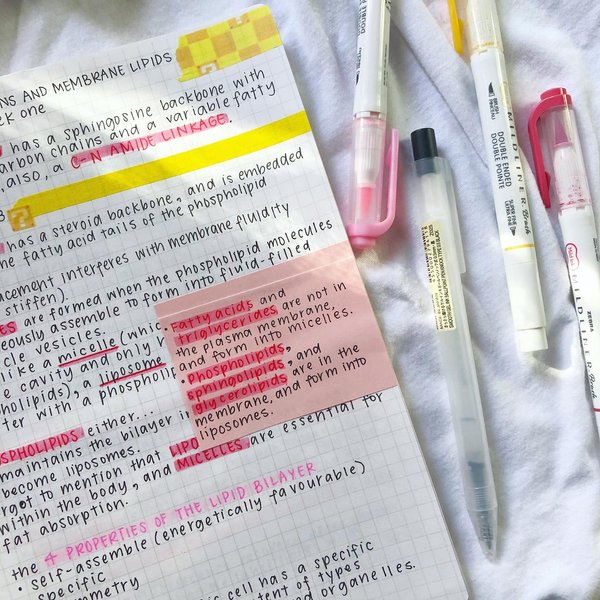 NS AND MEMBRANE LIPIDS
EK ONE
has a sphingosine backbone with
arbon chains and a variable fatty
also, a C-N AMIDE LINKAGE.
has a steroid backbone, and is embedded
he fatty acid tails of the phospholipid
acement interferes with membrane fluidity
stiffen).
ES are formed when the phospholipid molecules
neously assemble to form into fluid-filled
cle vesicles.
like a micelle (whic
e cavity and only
holipids), a liposome
ter with a phospholi
OSPHOLIPIDS either...
maintains the bilayer in
become liposomes.
rgot to mention that LIPO
within the body, and MICELLES are essential for
fat absorption.
• Fatty acids and
triglycerides are not in
the plasma membrane,
and form into micelles.
• phospholipids,
sphingolipids, and
glycerolipids are in the
membrane, and form into
liposomes.
the 4 PROPERTIES OF THE LIPID BILAYER
• self-assemble (energetically favourable)
• specific
mmetry
ic cell has a specific
ntent of types
nd organelles.
DOUBLE EN
DOUBLE PO
BRUSH
PINCEAU
MILDLINER Brush
DOUBLE ENDED
DOUBLE POINTE
SUPER FINE
EXTRA FINE
ZEBRA
MILDLINER Brush